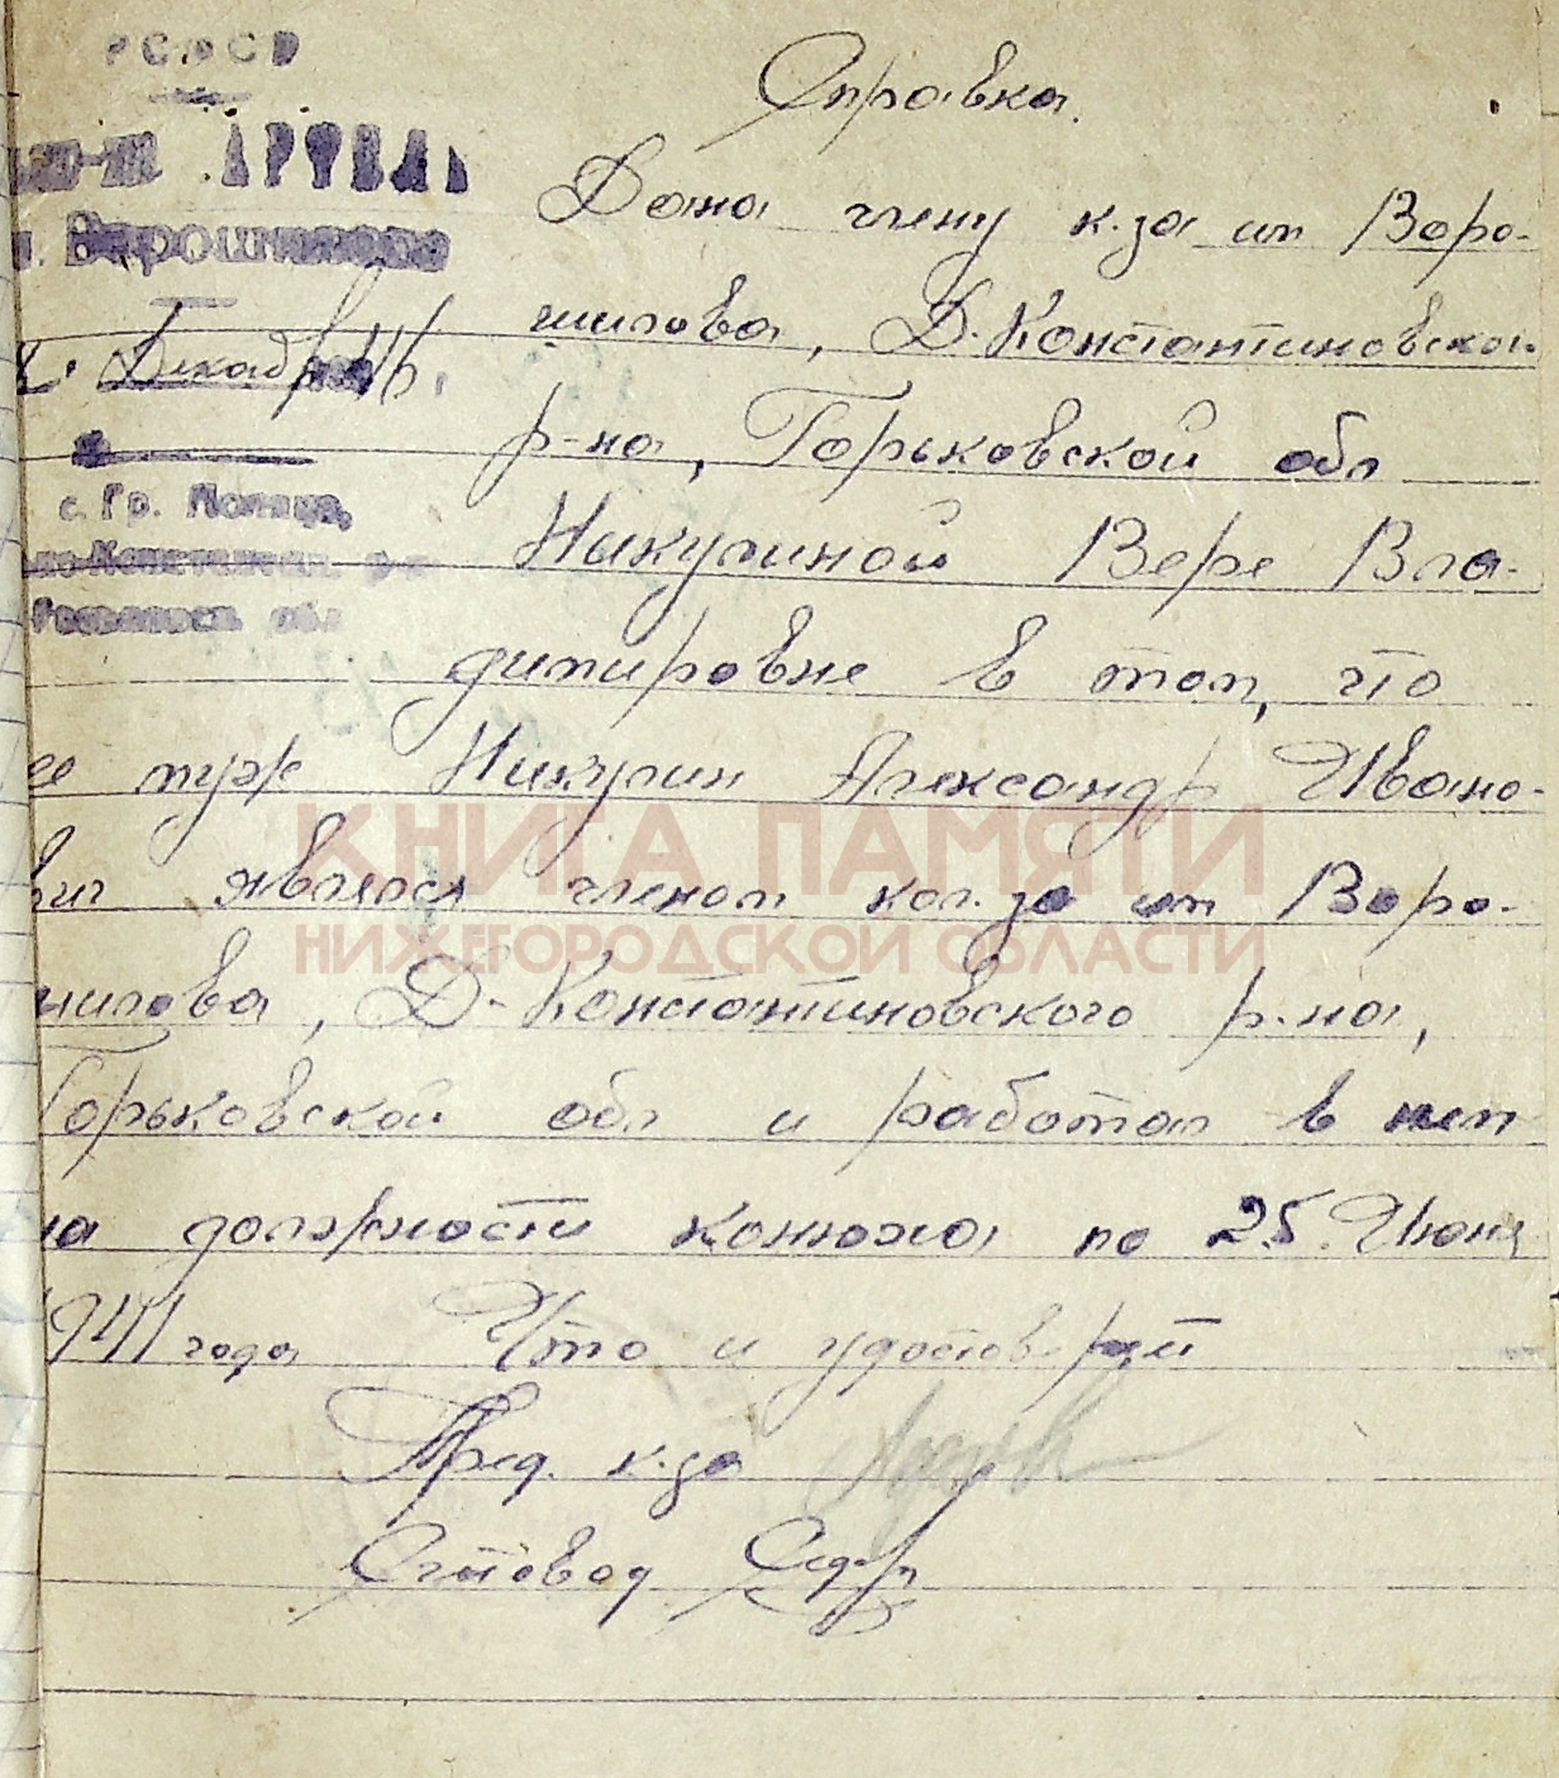 РСФСР
Справка.
АРТЕЛЬ
Ворошилова
Декабря 46.
с. Гр. Поляна,
обл
Дана члену к.за им Воро-
шилова, Д.Константиновско-
р-на, Горьковской обл
Никулиной Вере Вла-
димировне в том, что
ее муж Никулин Александр Ивано-
вич являлся членом кол.за им Воро-
шилова, Д-Константиновского р.на,
Горьковской обл и работал в нем
на должности конюха по 25. Июня
1941 года Что и удостоверяет
Пред. к.за
Счетовод
КНИГА ПАМЯТИ
НИЖЕГОРОДСКОЙ ОБЛАСТИ